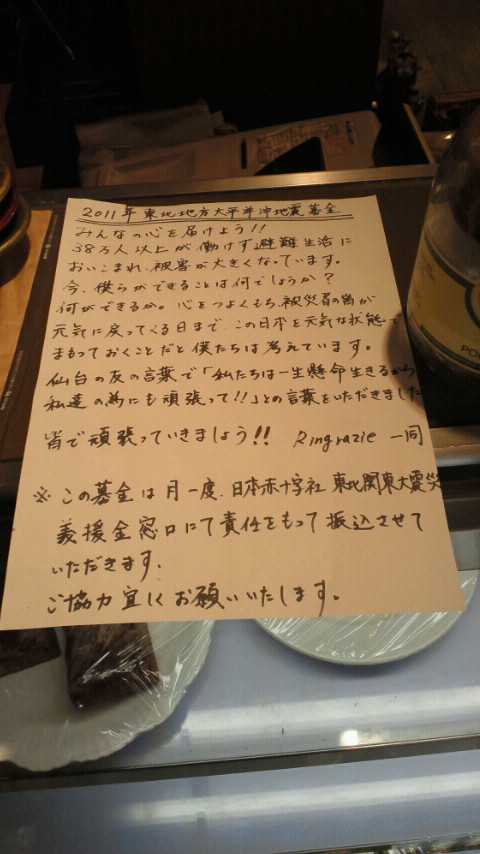 2011年 東北地方太平洋沖地震募金
みんなの心を届けよう!!
38万人以上が働けず避難生活に
おいこまれ、被害が大きくなっています。
今、僕らができることは何でしょうか?
何ができるか。心をつよくもち、被災者の皆が
元気に戻ってくる日まで、この日本を元気な状態で
まもっておくことだと僕たちは考えています。
仙台の友の言葉で「私たちは一生懸命生きるから
私達の為にも頑張って!!」との言葉をいただきました
皆で頑張っていきましょう!! Ringrazie 一同
※ この募金は月一度、日本赤十字社 東北関東大震災
義援金窓口にて責任をもって振込させて
いただきます。
ご協力宜しくお願いいたします。
PO